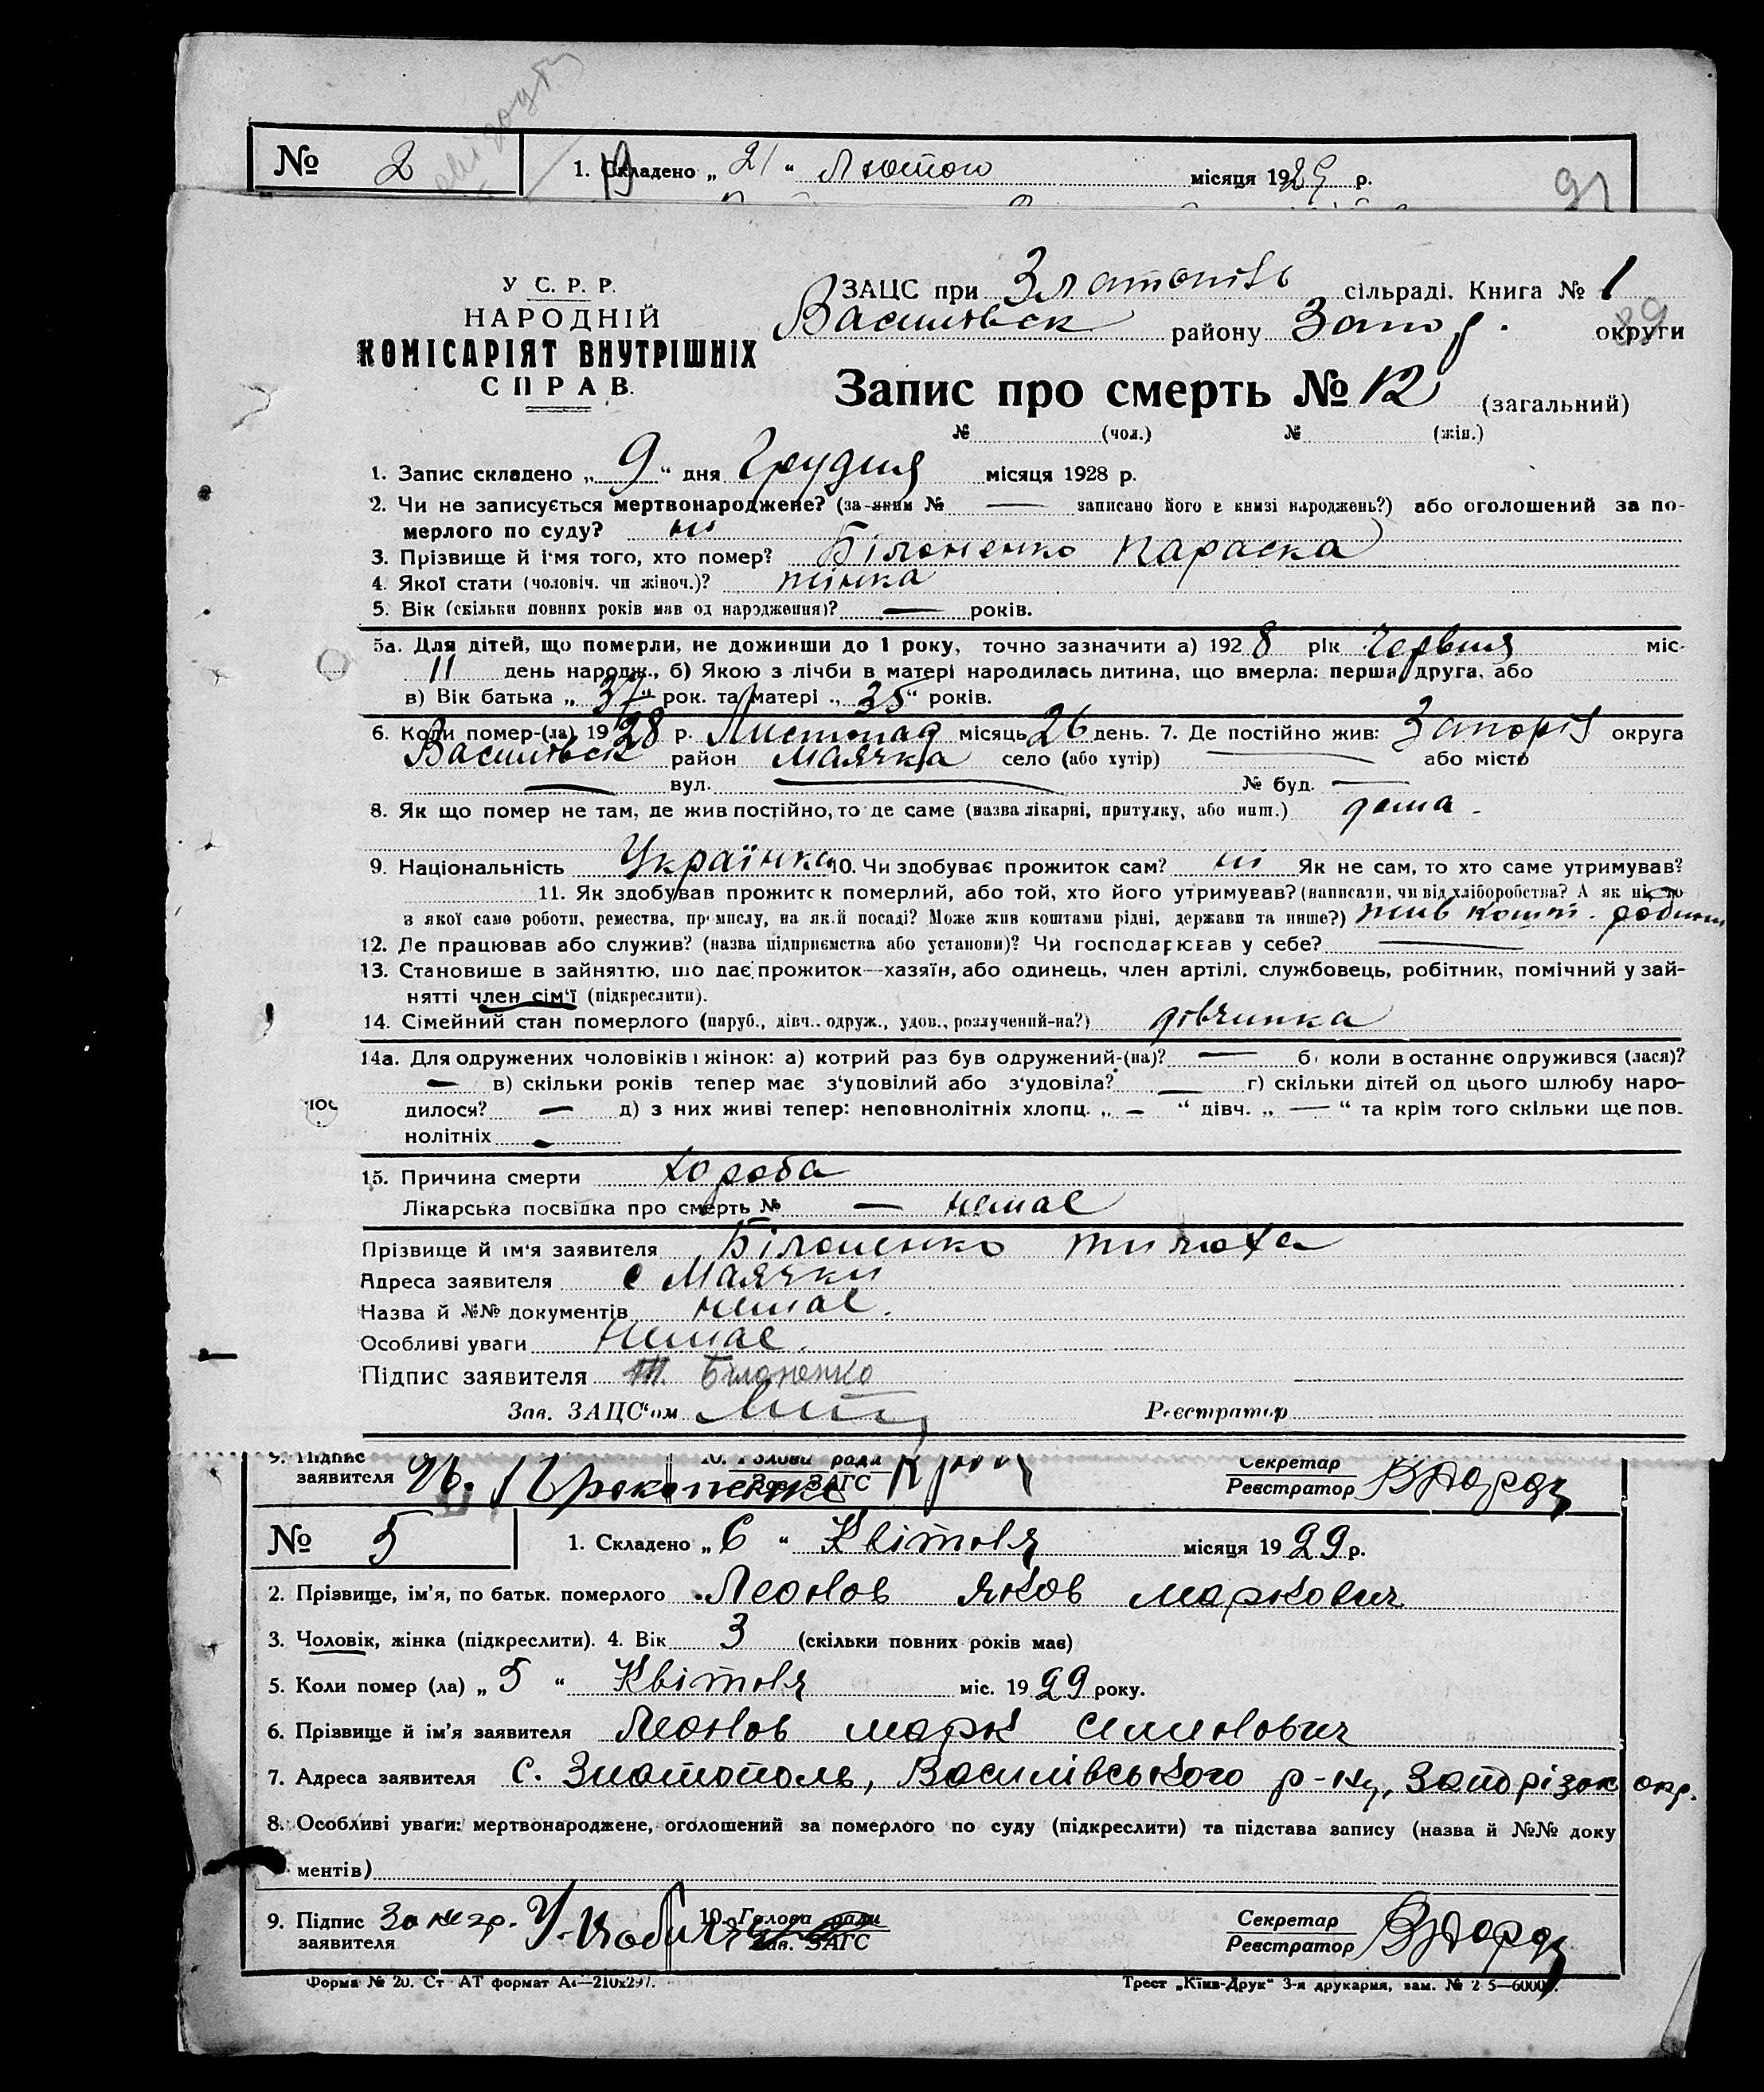 № 2
1. Складено „ 21 “ Лютого місяця 1929 р.
91
У. С. Р. Р.
НАРОДНІЙ
КОМІСАРІЯТ ВНУТРІШНІХ
СПРАВ.
ЗАЦС при сільраді. Книга № 1
Василівськ району Запор. округи
89
Запис про смерть № 12 (загальний)
№ (чол.) № (жін.)
1. Запис складено „ 9 “ дня Грудня місяця 1928 р.
2. Чи не записується мертвонароджене? (за яким № — записано його в книзі народжень?) або оголошений за по-
мерлого по суду? ні
3. Прізвище й ім'я того, хто помер? Білоненко Параска
4. Якої стати (чоловіч. чи жіноч.)? жінка
5. Вік (скільки повних років мав од народження)? — років.
5а. Для дітей, що померли, не доживши до 1 року, точно зазначити а) 1928 рік Червня міс.
11 день народж., б) Якою з лічби в матері народилась дитина, що вмерла: перша, друга, або
в) Вік батька „ 37 “ рок. та матері „ 35 “ років.
6. Коли помер-(ла) 1928 р. Листопад місяць 26 день. 7. Де постійно жив: Запоріз округа
Василівськ район Маячка село (або хутір) — або місто
— вул. — № буд. —
8. Як що помер не там, де жив постійно, то де саме (назва лікарні, притулку, або инш.) дома.
9. Національність Українка 10. Чи здобуває прожиток сам? ні Як не сам, то хто саме утримував?
11. Як здобував прожиток померлий, або той, хто його утримував? (написати, чи від хліборобства? А як ні, то
з якої само роботи, ремества, промислу, на якій посаді? Може жив коштами рідні, держави та инше?) жив кошт. родини
12. Де працював або служив? (назва підприємства або установи)? Чи господарював у себе? —
13. Становише в зайняттю, що дає прожиток—хазяїн, або одинець, член артілі, службовець, робітник, помічний у зай-
нятті член сім'ї (підкреслити).
14. Сімейний стан померлого (паруб., дівч., одруж., удов., розлучений-на?) дівчинка
14а. Для одружених чоловіків і жінок: а) котрий раз був одружений-(на)? — б) коли востаннє одружився (лася)?
— в) скільки років тепер має з'удовілий або з'удовіла? — г) скільки дітей од цього шлюбу наро-
дилося? — д) з них живі тепер: неповнолітніх хлопц. „ — “ дівч. „ — “ та крім того скільки ще пов-
нолітніх —
15. Причина смерти хороба
Лікарська посвідка про смерть № — немає
Прізвище й ім'я заявителя Білоненко Тимоха
Адреса заявителя с Маячки
Назва й №№ документів немає.
Особливі уваги немає.
Підпис заявителя Т. Білоненко
Зав. ЗАЦС'ом Реєстратор
9. Підпис заявителя Прокопенко 10. Голова ради Зав. ЗАГС Секретар Реєстратор
№ 5
1. Складено „ 6 “ Квітня місяця 1929 р.
2. Прізвище, ім'я, по батьк. померлого Леонов Яков Маркович
3. Чоловік, жінка (підкреслити). 4. Вік 3 (скільки повних років має)
5. Коли помер (ла) „ 5 “ Квітня міс. 1929 року.
6. Прізвище й ім'я заявителя Леонов Марк Симонович
7. Адреса заявителя С. Златополь, Василівського р-ну, Запорізок окр.
8. Особливі уваги: мертвонароджене, оголошений за померлого по суду (підкреслити) та підстава запису (назва й №№ доку
ментів)
9. Підпис заявителя За негр. 10. Голова ради Зав. ЗАГС Секретар Реєстратор
Форма № 20. Ст АТ формат А4—210х297. Трест „Київ-Друк“ 3-я друкарня, зам. №